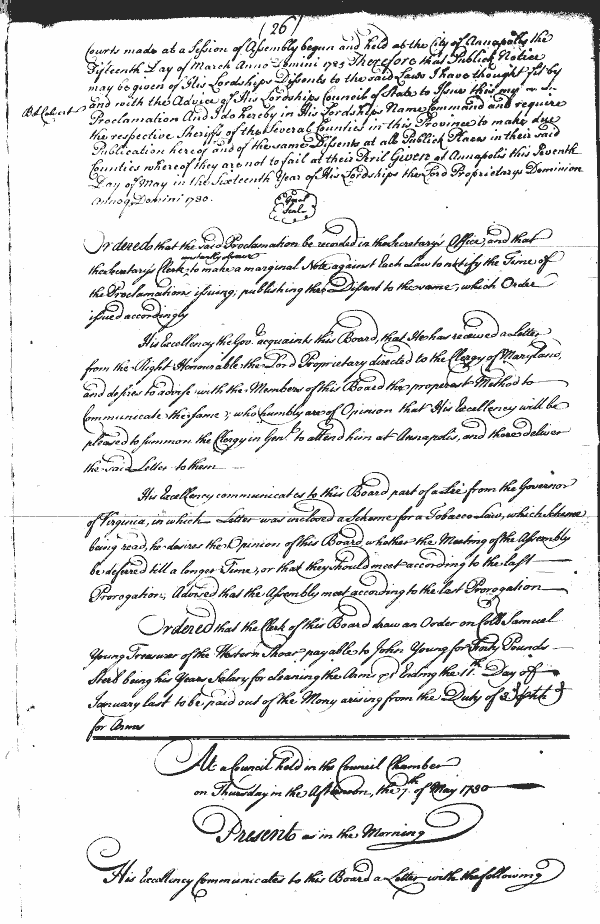 (26)
Courts made at a Session of Assembly begun and held at the City of Annapolis the
Fifteenth Day of March Anno Domini 1725 Therefore that Publick Notice
may be given of His Lordships Dissents to the said Laws I have thought fit by
and with the Advice of His Lordships Council of State to Issue this my
Proclamation And I do hereby in His Lordships Name Command and require
the respective Sheriffs of the several Counties in this Province to make due
Publication hereof and of the same Dissents at all Publick Places in their said
Counties whereof they are not to fail at their Peril Given at Annapolis this Seventh
Day of May in the Sixteenth Year of His Lordships the Lord Proprietarys Dominion
Annoq Domini 1730.
Bd. Calvert
Great
Seal
Ordered that the said Proclamation be recorded in the Secretary's Office, and that
the Secretary's Clerk to make a marginal Note against Each Law to notify the Time of
the Proclamations issuing, publishing the Dissent to the same, which Order
issued accordingly
His Excellency the Gov.r acquaints this Board, that He has received a Letter
from the Right Honourable the Lord Proprietary directed to the Clergy of Maryland,
and desires to advise with the Members of this Board the properest Method to
Communicate the same; who humbly are of Opinion that His Excellency will be
pleased to summon the Clergy in Gen.l to attend him at Annapolis, and there deliver
the said Letter to them
His Excellency communicates to this Board part of a Lre from the Governor
of Virginia, in which Letter was inclosed a Scheme for a Tobacco Law, which Scheme
being read, he desires the Opinion of this Board whether the Meeting of the Assembly
be deferred till a longer Time, or that they should meet according to the last
Prorogation, Advised that the Assembly meet according to the last Prorogation
Ordered that the Clerk of this Board draw an Order on Coll.o Samuel
Young Treasurer of the Western Shoar payable to John Young for Forty Pounds
Sterl being his Years Salary for cleaning the Arms &c Ending the 11.th Day of
January last to be paid out of the Mony arising from the Duty of 3.d
for Arms
At a Council held in the Council Chamber
on Thursday in the Afternoon, the 7.th of May 1730
Present as in the Morning
His Excellency Communicates to this Board a Letter with the following